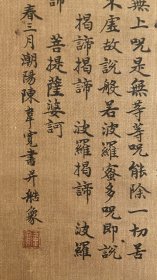 無上呪是無等等呪能除一切苦
不虛故說般若波羅蜜多呪即說
揭諦揭諦 波羅揭諦 波羅
菩提薩婆訶
春三月潮陽陳韋寬書并繪象